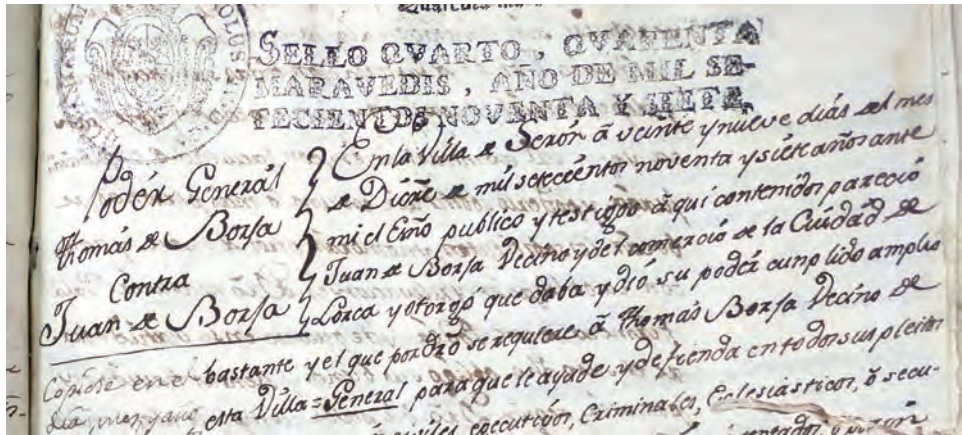 SELLO QVARTO, QVARENTA
MARAVEDIS, AÑO DE MIL SE-
TECIENTOS NOVENTA Y SIETE.
Podér Generál
Thomás de Borja
Contra
Juan de Borja
En la Villa de Serón á veinte y nueve días del mes
de Dizre de mil setecientos noventa y siete años ante
mi el Esno publico y testigos aquí contenidos pareció
Juan de Borja Vecino y del comercio de la Ciudád de
Lorca y otorgó que daba y dió su podér cunplido amplio
bastante y el que por dro se requiere á Thomás Borja Vecino de
esta Villa = General para que le ayude y defienda en todos sus pleitos
civiles executivos, Criminales, Eclesiásticos, ó secu-
Copiose en el
día, mes y año